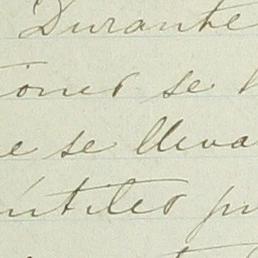 Durante
iones se l
e se lleva
útiles pr